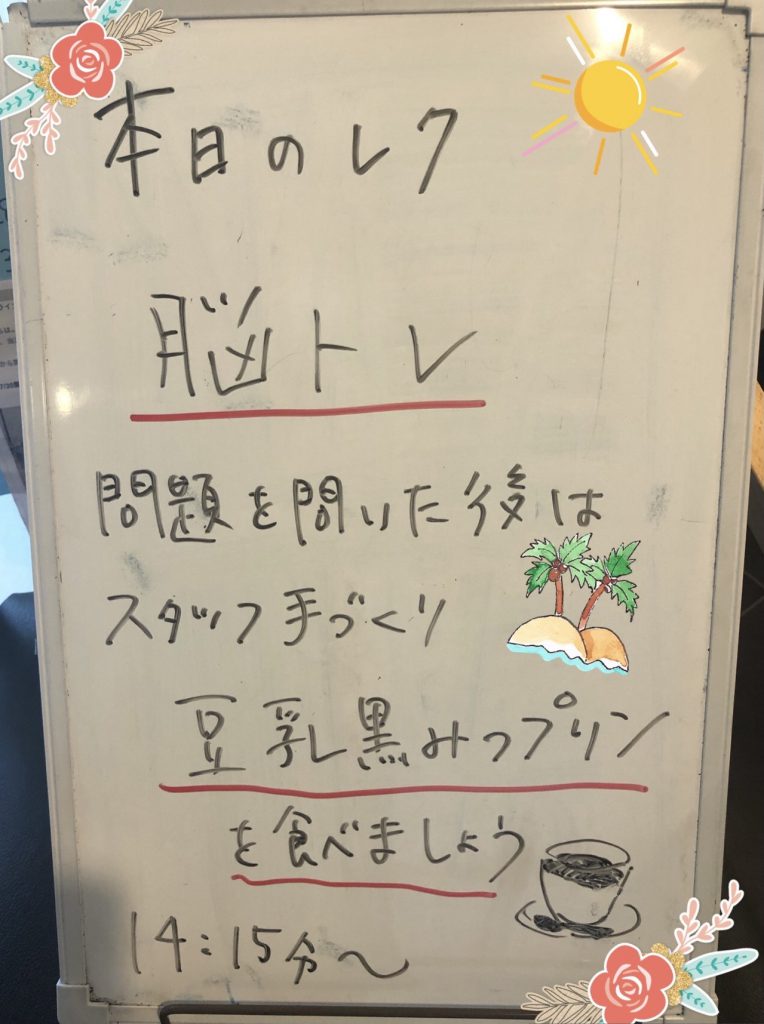 本日のレク
脳トレ
問題を問いた後は
スタッフ手づくり
豆乳黒みつプリン
を食べましょう
14:15分〜